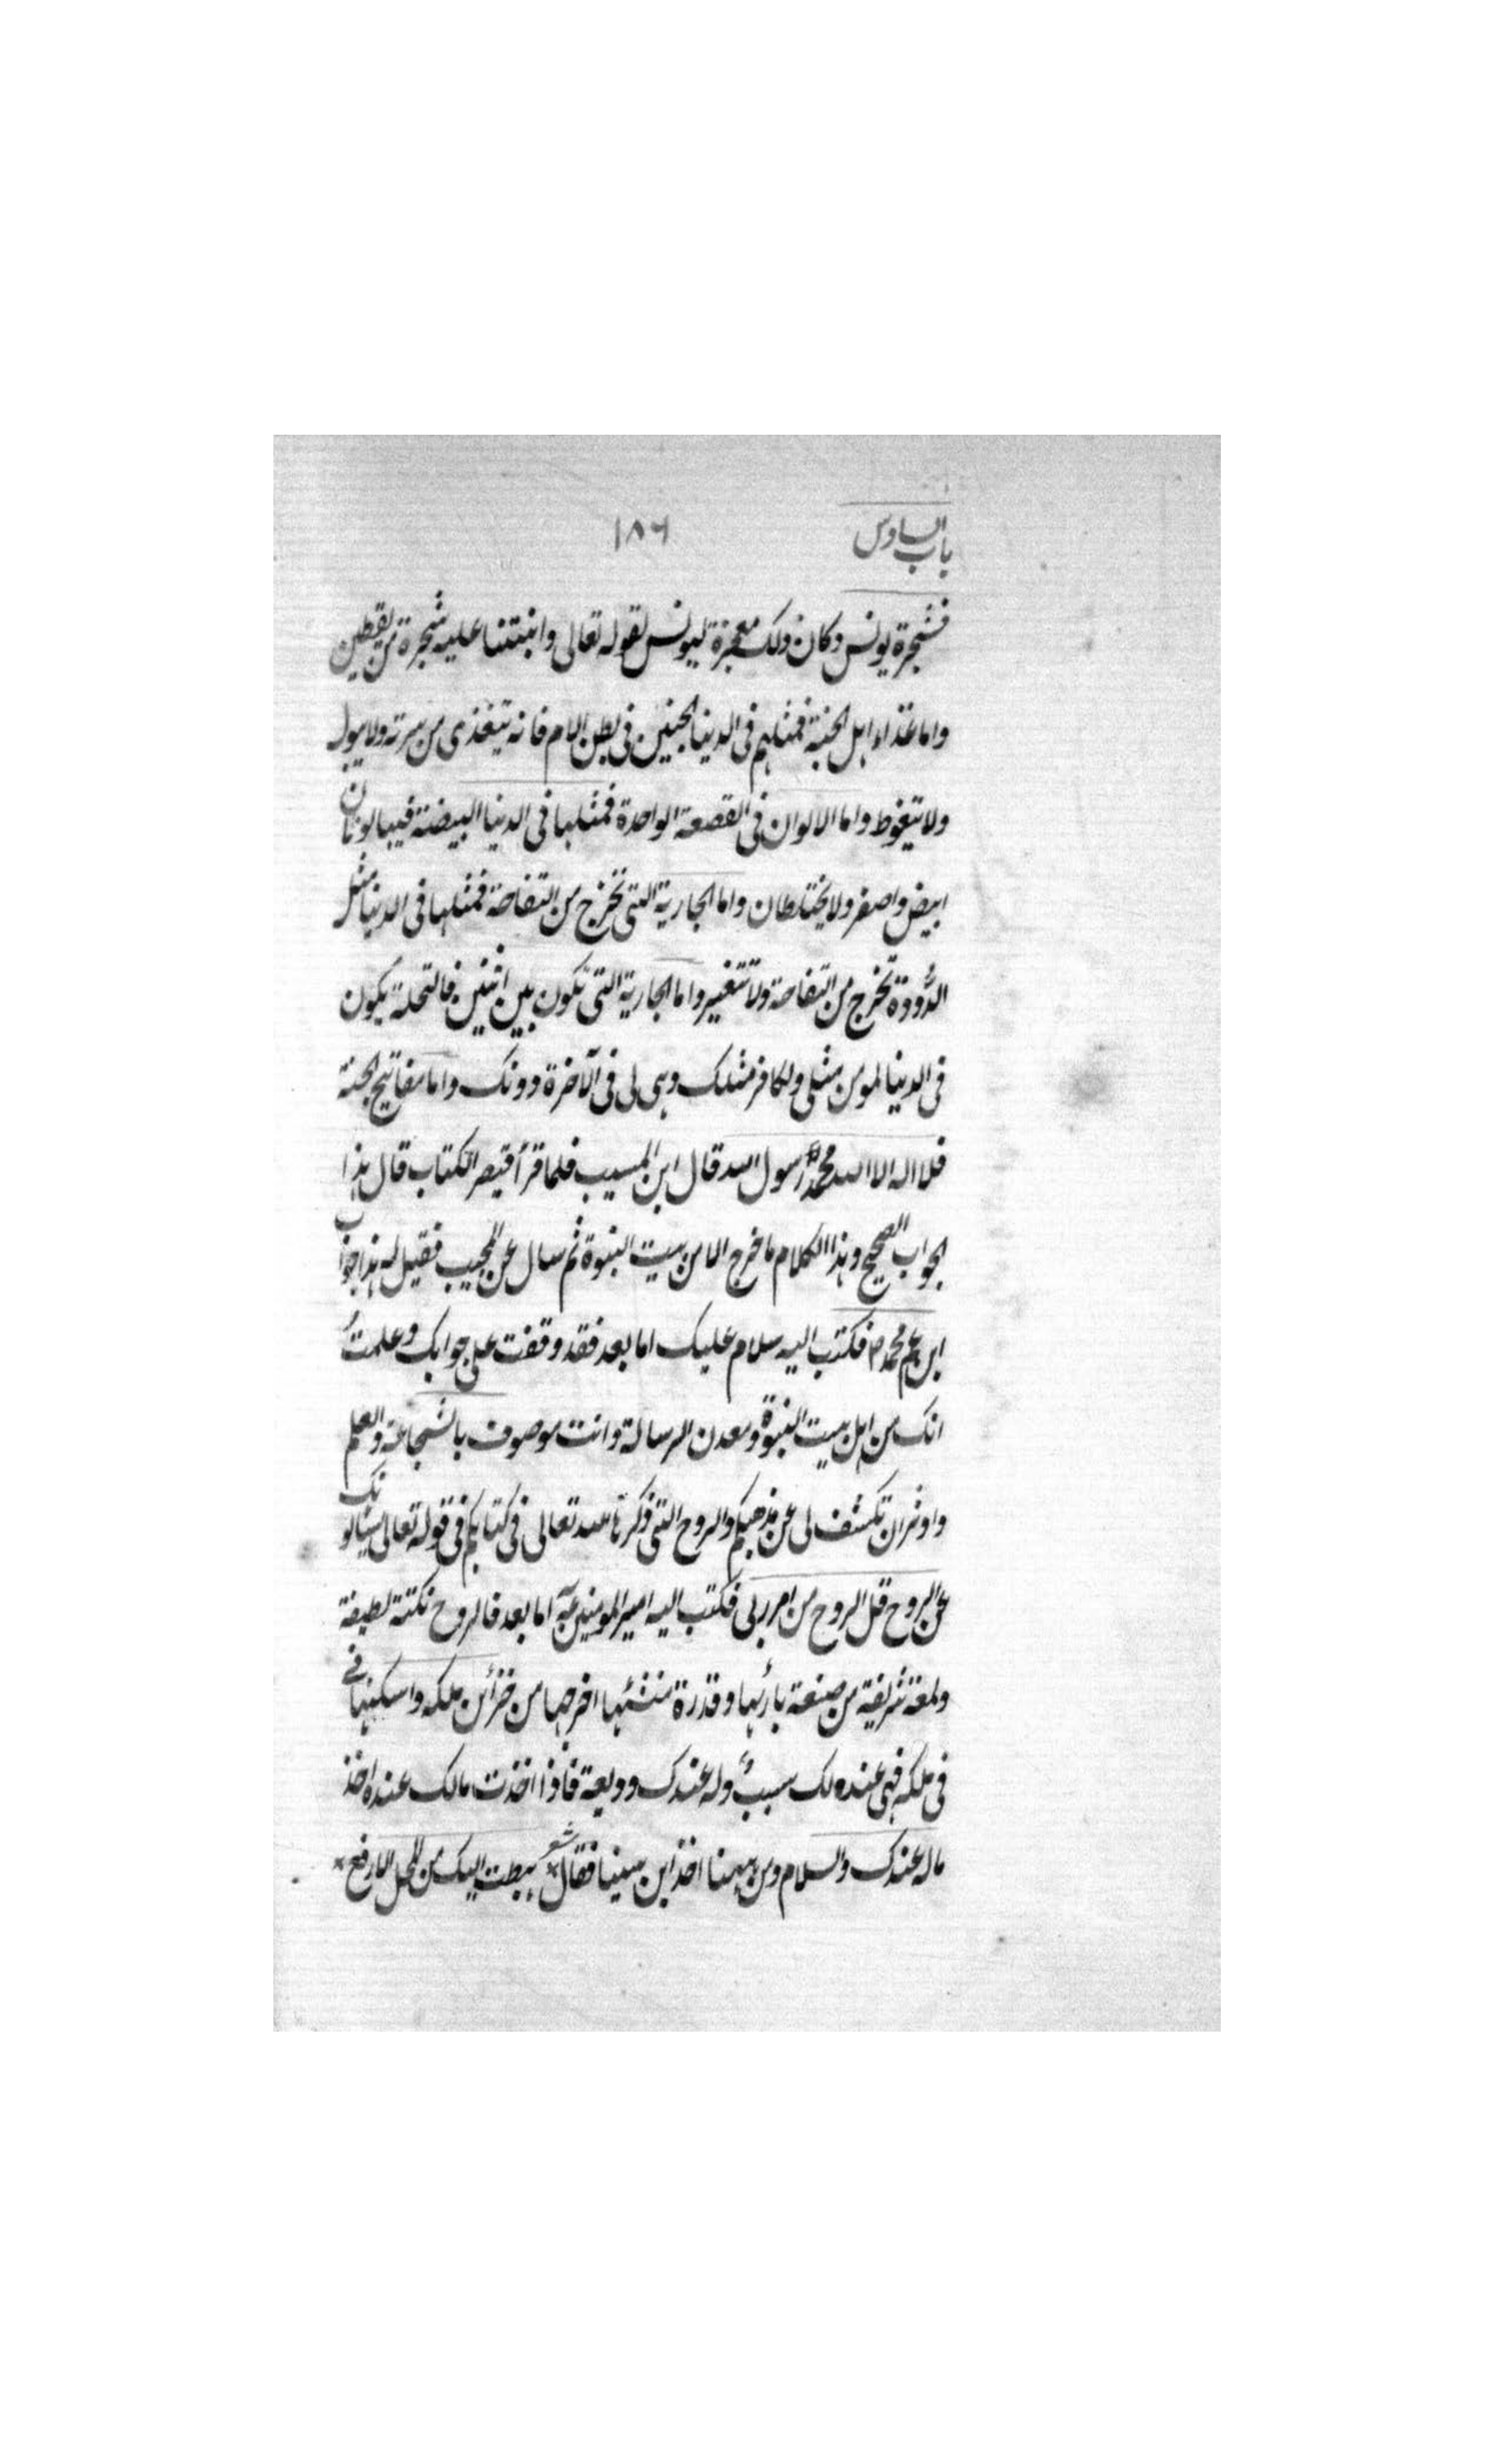 باب السادس
١٨٦
فشجرة يونس وكان ذلك معجزة ليونس لقوله تعالى وانبتنا عليه شجرة من يقطين
واما غذاء اهل الجنة فمثلهم فى الدنيا الجنين فى بطن الام فانه يتغذى من سرته ولا يبول
ولا يتغوط واما الالوان فى القصعة الواحدة فمثلها فى الدنيا البيضة فيها لونان
ابيض واصفر ولا يختلطان واما الجارية التى تخرج من التفاحة فمثلها فى الدنيا مثل
الدُّودة تخرج من التفاحة ولا تتغير واما الجارية التى تكون بين اثنين فالنخلة يكون
فى الدنيا لمومن مثلى ولكافر مثلك وهى لى فى الآخرة دونك واما مفاتيح الجنة
فلا اله الا الله محمدٌ رسول الله قال ابن المسيب فلما قرأ قيصر الكتاب قال هذا
الجواب الصحيح وهذا الكلام ما خرج الا من بيت النبوة ثم سال عن المجيب فقيل له هذا جواب
ابن عم محمد ص فكتب اليه سلام عليك اما بعد فقد وقفت على جوابك وعلمتُ
انك من اهل بيت النبوة ومعدن الرسالة وانت موصوف بالشجاعة والعلم
واوثر ان تكشف لى عن مذهبكم والروح التى ذكرها الله تعالى فى كتابكم فى قوله تعالى يسئالونك
عن الروح قل الروح من امر ربى فكتب اليه امير المومنين اما بعد فالروح نكتة لطيفة
ولمعة شريفة من صنعة بارئها وقدرة منشئها اخرجها من خزائن ملكه واسكنها فى
فى ملكه فهى عنده لك سببٌ وله عندك وديعة فاذا اخذت مالك عنده اخذ
ماله عندك والسلام ومن ههنا اخذ ابن سينا فقال شعر هبطت اليك من المحل الارفع